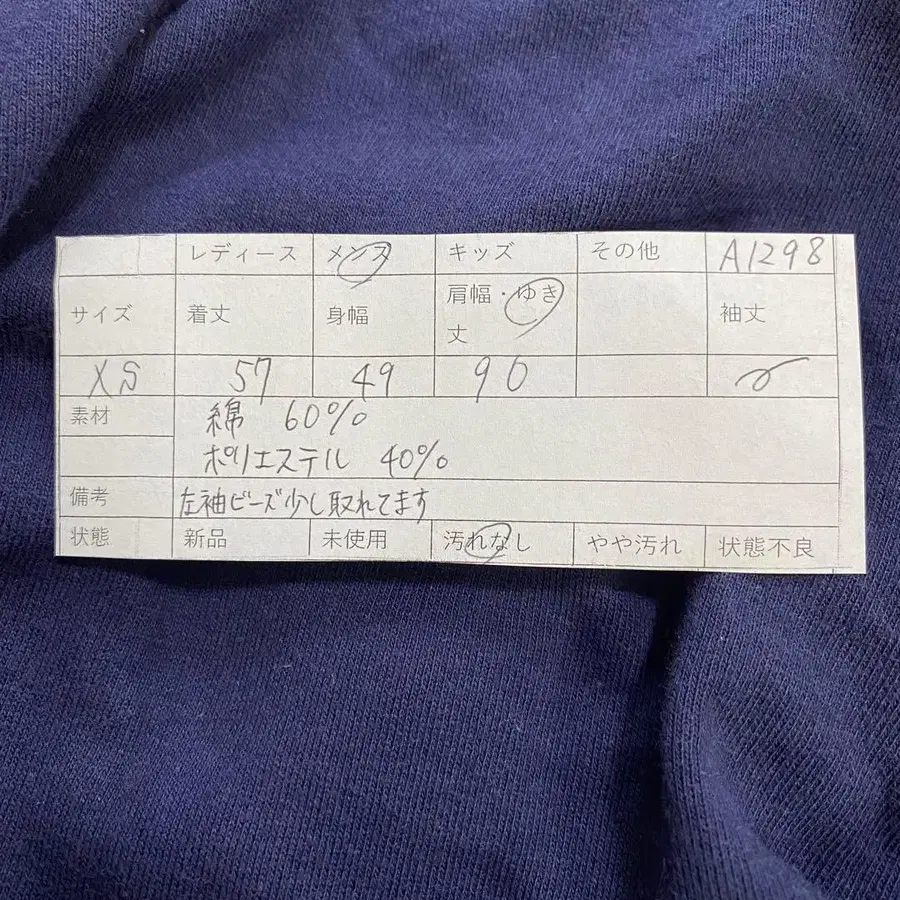 レディース メンズ キッズ その他 A1298
サイズ 着丈 身幅 肩幅・ゆき丈 袖丈
XS 57 49 90
素材 綿 60%
ポリエステル 40%
備考 左袖ビーズ少し取れてます
状態 新品 未使用 汚れなし やや汚れ 状態不良